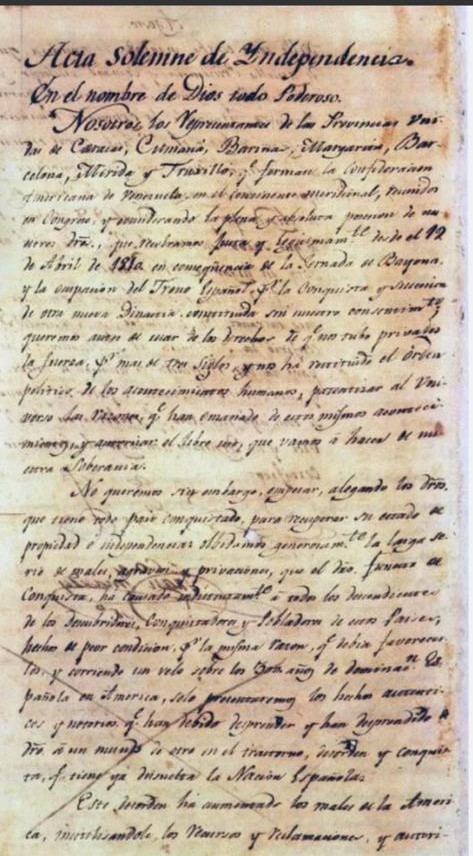 Acta solemne de Yndependencia.
En el nombre de Dios todo Poderoso.
Nosotros los Representantes de las Provincias Uni-
das de Caracas, Cumaná, Barinas, Margarita, Bar-
celona, Mérida y Truxillo, q.e forman la Confederacion
Americana de Venezuela en el continente meridional, reunidos
en Congreso, y considerando la plena y absoluta posesion de nu
estros dros., que recobramos justa y legitimam.te desde el 19
de Abril de 1810 en conseqüencia de la Jornada de Bayona,
y la ocupacion del Trono Español, p.r la Conquista y succesion
de otra nueva Dinastia, constituida sin nuestro consentim.to,
queremos antes de usar de los derechos de q.e nos tubo privados
la fuerza, p.r mas de tres siglos, y nos ha restituido el órden
politico de los acontecimientos humanos, patentizar al Uni-
verso las razones, q.e han emanado de estos mismos aconteci-
mientos, y autorizan el libre uso, que vamos á hacer de nu
estra Soberania.
No queremos sin embargo, empezar, alegando los dros.
que tiene todo pais conquistado, para recuperar su estado de
propiedad é independencia: olvidamos generosam.te la larga se-
rie de males, agravios y privaciones, que el dro. funesto de
Conquista, ha causado indistintam.te á todos los descendientes
de los descubridores, Conquistadores y Pobladores de estos Paises,
hechos de peor condicion, p.r la misma razon, q.e debia favorecer-
los, y corriendo un velo sobre los 300 años de dominac.n Es-
pañola en America, solo presentaremos los hechos autenti-
cos y notorios, q.e han debido desprender y han desprendido de
dro. á un mundo de otro en el trastorno, desorden y conquis-
ta, q.e tiene ya disuelta la Nación Española.
Este desorden ha aumentado los males de la Ameri-
ca, inutilisandole, los recursos y reclamaciones, y autori-